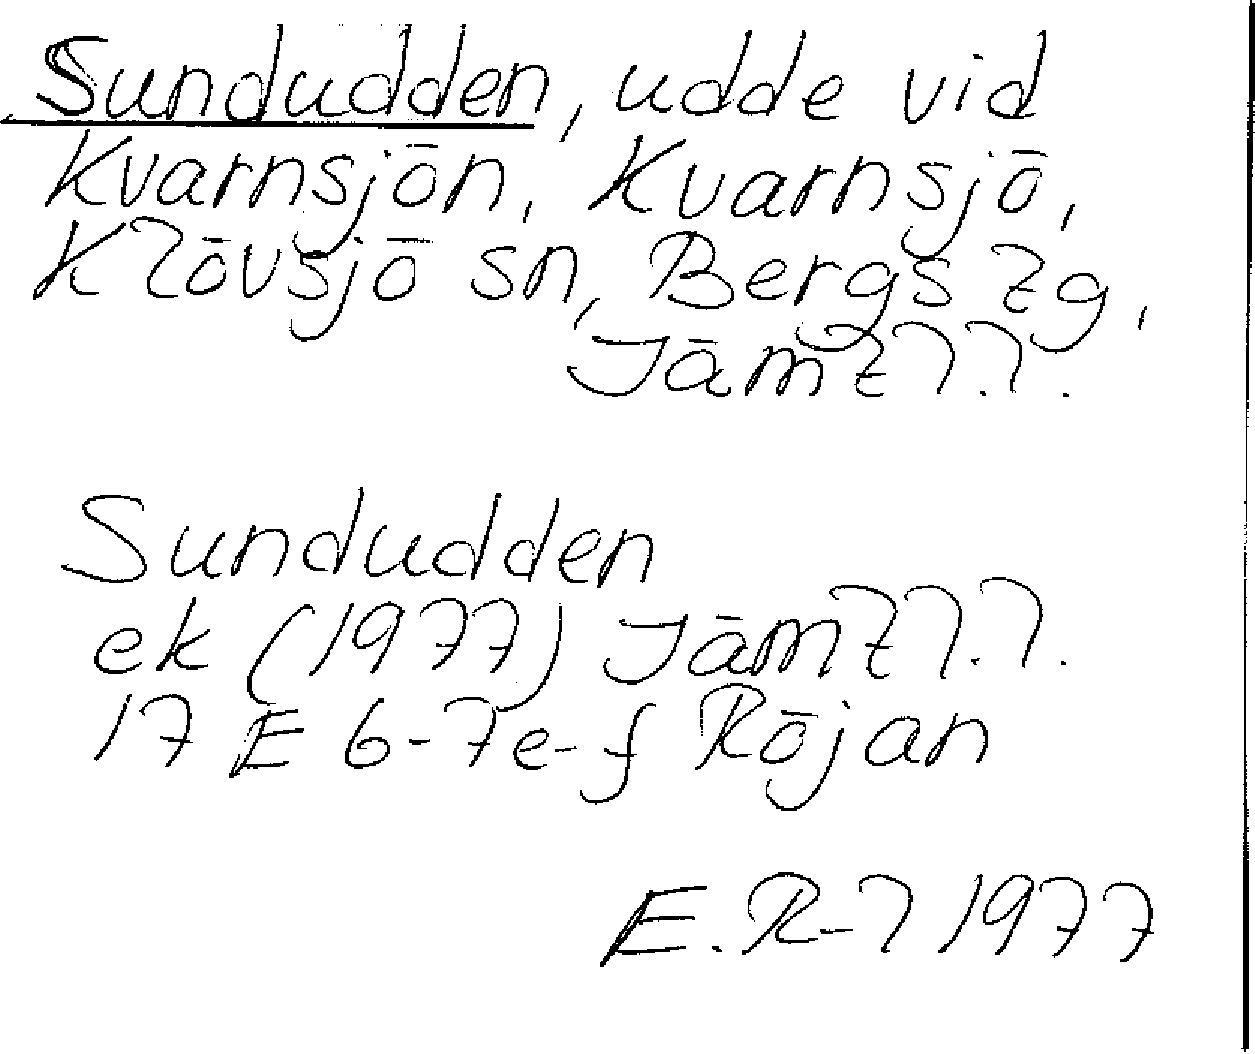 Sundudden, udde vid
Kvarnsjön, Kvarnsjö,
Klövsjö sn, Bergs tg,
Jämtl.l.
Sundudden
ek (1977) Jämtl.l.
17 E 6-7e-f Röjan
E.R-l 1977